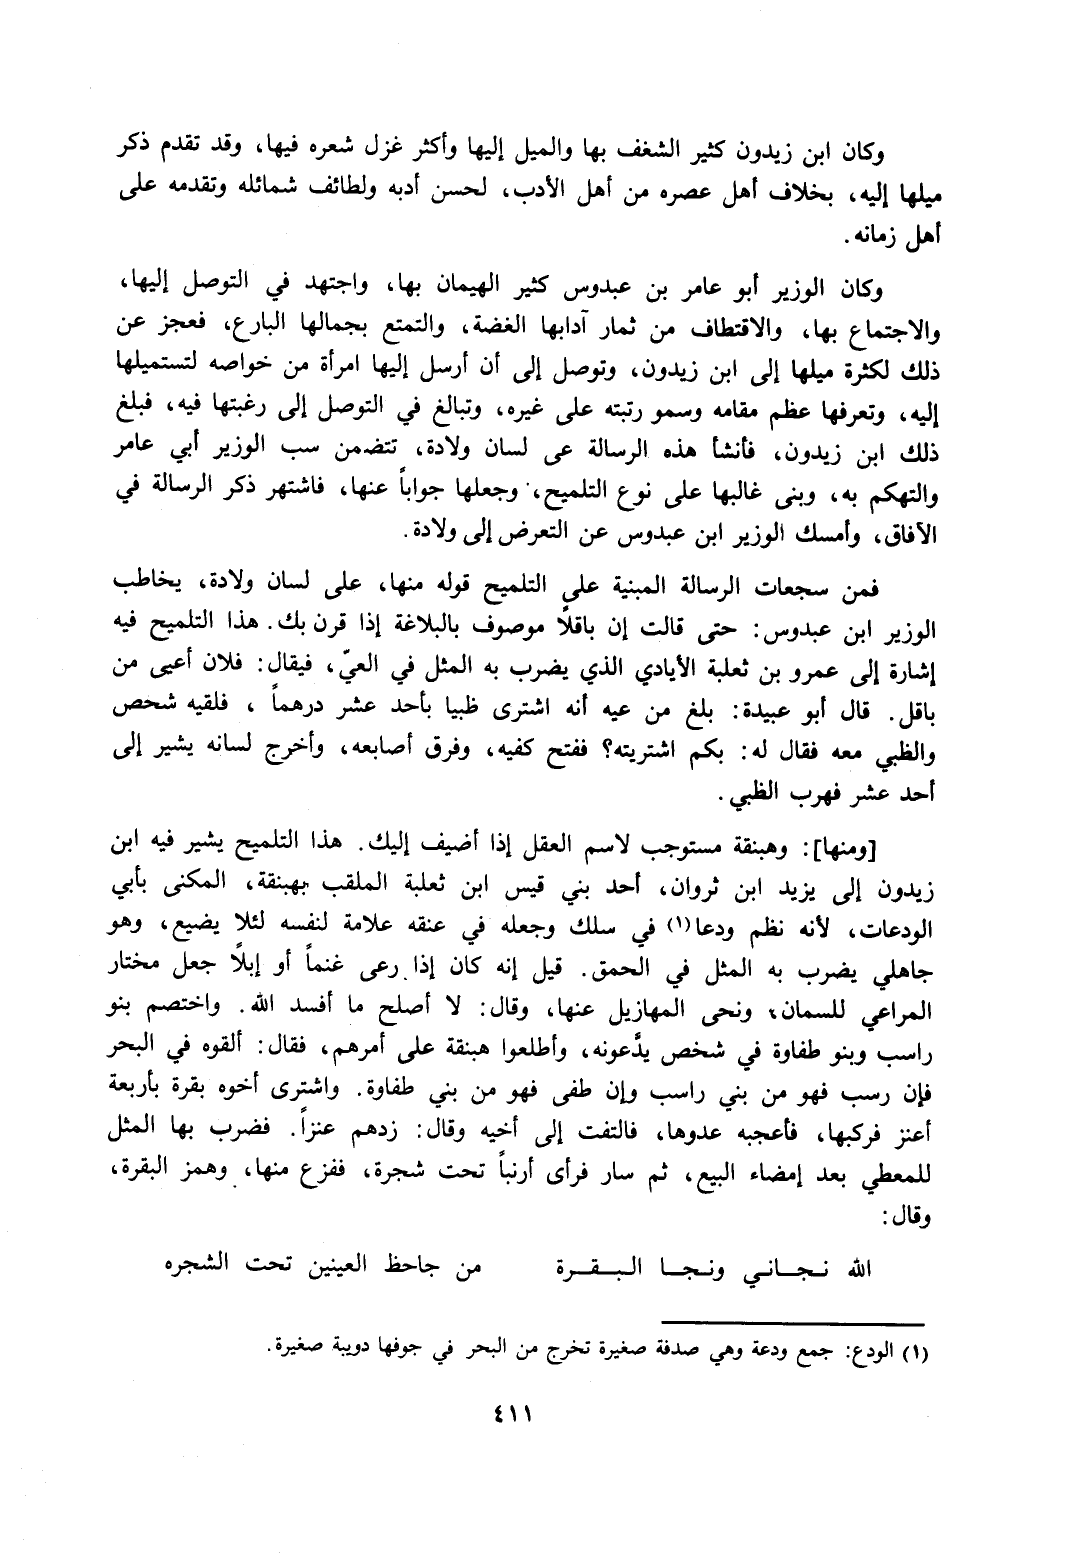 وكان ابن زيدون كثير الشغف بها والميل إليها وأكثر غزل شعره فيها، وقد تقدم ذكر
ميلها إليه، بخلاف أهل عصره من أهل الأدب، لحسن أدبه ولطائف شمائله وتقدمه على
أهل زمانه.
وكان الوزير أبو عامر بن عبدوس كثير الهيمان بها، واجتهد في التوصل إليها،
والاجتماع بها، والاقتطاف من ثمار آدابها الغضة، والتمتع بجمالها البارع، فعجز عن
ذلك لكثرة ميلها إلى ابن زيدون، وتوصل إلى أن أرسل إليها امرأة من خواصه لتستميلها
إليه، وتعرفها عظم مقامه وسمو رتبته على غيره، وتبالغ في التوصل إلى رغبتها فيه، فبلغ
ذلك ابن زيدون، فأنشأ هذه الرسالة عى لسان ولادة، تتضمن سب الوزير أبي عامر
والتهكم به، وبنى غالبها على نوع التلميح، وجعلها جواباً عنها، فاشتهر ذكر الرسالة في
الآفاق، وأمسك الوزير ابن عبدوس عن التعرض إلى ولادة.
فمن سجعات الرسالة المبنية على التلميح قوله منها، على لسان ولادة، يخاطب
الوزير ابن عبدوس: حتى قالت إن باقلاً موصوف بالبلاغة إذا قرن بك. هذا التلميح فيه
إشارة إلى عمرو بن ثعلبة الأيادي الذي يضرب به المثل في العيّ، فيقال: فلان أعيى من
باقل. قال أبو عبيدة: بلغ من عيه أنه اشترى ظبيا بأحد عشر درهماً ، فلقيه شخص
والظبي معه فقال له: بكم اشتريته؟ ففتح كفيه، وفرق أصابعه، وأخرج لسانه يشير إلى
أحد عشر فهرب الظبي.
[ومنها]: وهبنقة مستوجب لاسم العقل إذا أضيف إليك. هذا التلميح يشير فيه ابن
زيدون إلى يزيد ابن ثروان، أحد بني قيس ابن ثعلبة الملقب بهبنقة، المكنى بأبي
الودعات، لأنه نظم ودعا(١) في سلك وجعله في عنقه علامة لنفسه لئلا يضيع، وهو
جاهلي يضرب به المثل في الحمق. قيل إنه كان إذا رعى غنماً أو إبلاً جعل مختار
المراعي للسمان، ونحى المهازيل عنها، وقال: لا أصلح ما أفسد الله. واختصم بنو
راسب وبنو طفاوة في شخص يدَّعونه، وأطلعوا هبنقة على أمرهم، فقال: ألقوه في البحر
فإن رسب فهو من بني راسب وإن طفى فهو من بني طفاوة. واشترى أخوه بقرة بأربعة
أعنز فركبها، فأعجبه عدوها، فالتفت إلى أخيه وقال: زدهم عنزاً. فضرب بها المثل
للمعطي بعد إمضاء البيع، ثم سار فرأى أرنباً تحت شجرة، ففزع منها، وهمز البقرة،
وقال:
الله نجاني ونجا البقرة من جاحظ العينين تحت الشجره
(١) الودع: جمع ودعة وهي صدفة صغيرة تخرج من البحر في جوفها دويبة صغيرة.
٤١١